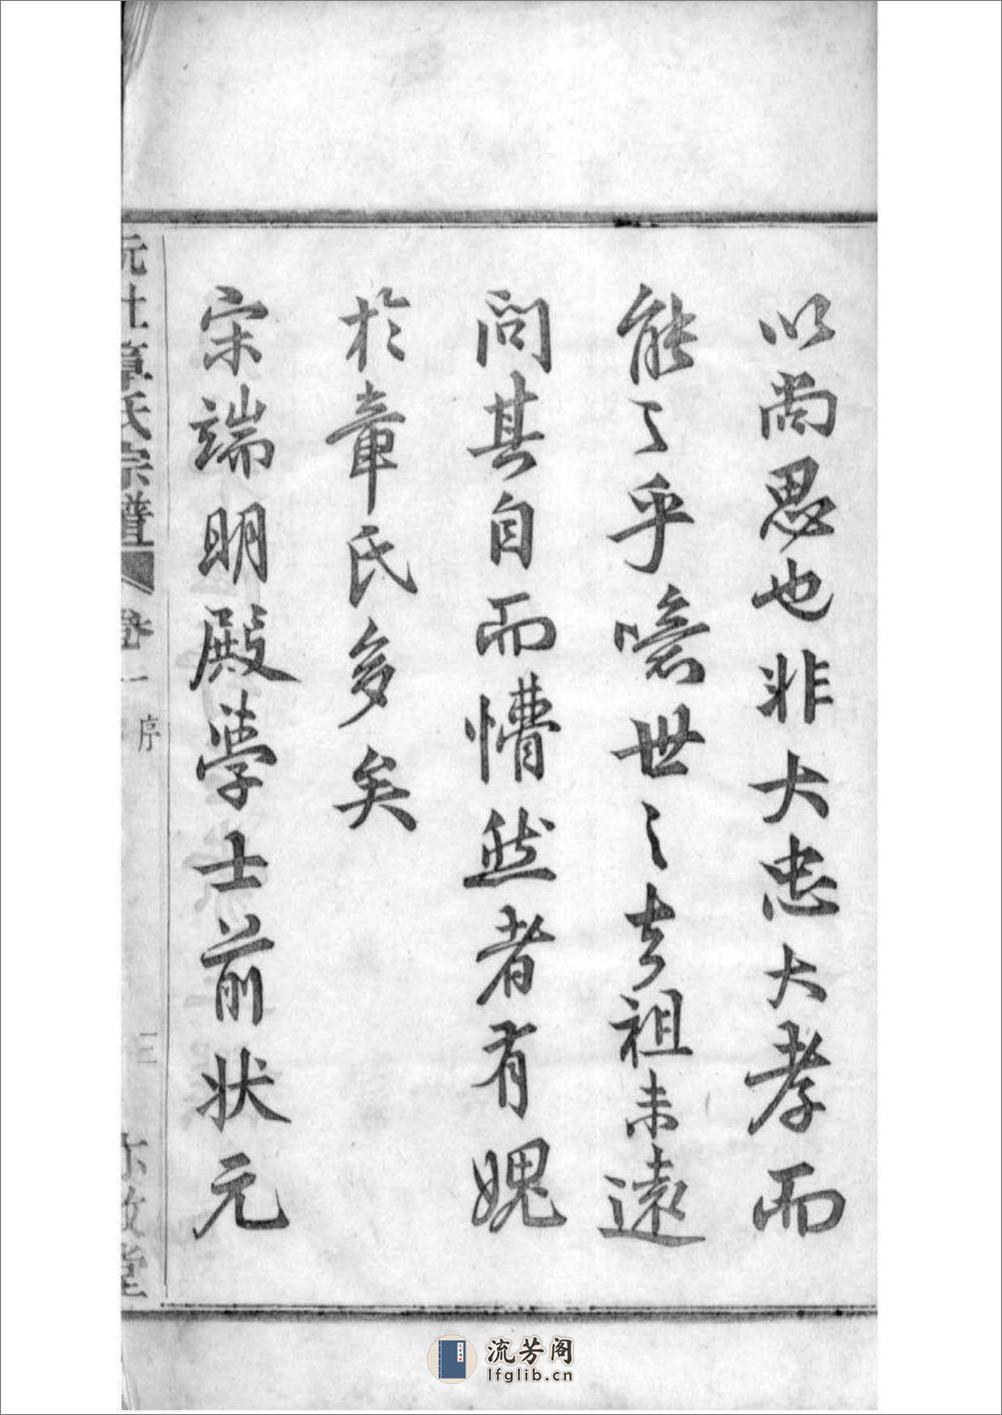 以尚思也非大忠大孝而
能之乎噫世之去祖未遠
問其自而懵然者有媿
於章氏多矣
宋端明殿學士前狀元
阮社章氏宗譜 卷一 序 三 堂
流芳阁
lfglib.cn